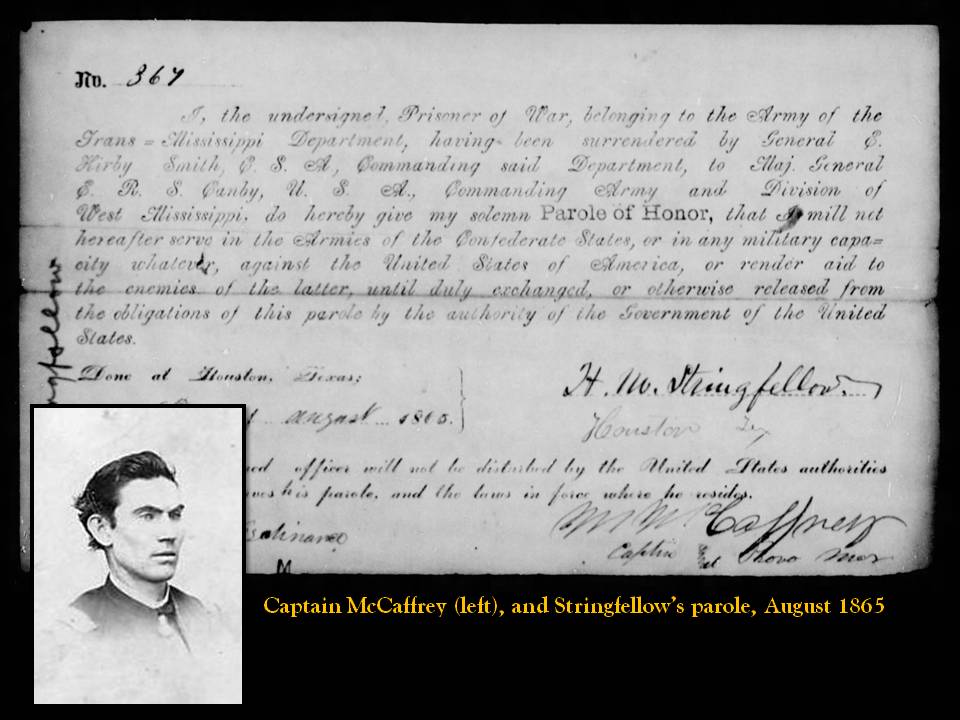 No. 367
I, the undersigned, Prisoner of War, belonging to the Army of the
Trans=Mississippi Department, having been surrendered by General E.
Kirby Smith, C. S. A., Commanding said Department, to Maj. General
E. R. S. Canby, U. S. A., Commanding Army and Division of
West Mississippi, do hereby give my solemn Parole of Honor, that I will not
hereafter serve in the Armies of the Confederate States, or in any military capa=
city whatever, against the United States of America, or render aid to
the enemies of the latter, until duly exchanged, or otherwise released from
the obligations of this parole by the authority of the Government of the United
States.
Done at Houston, Texas;
H. M. Stringfellow
august 1865.
Houston Tex
officer will not be disturbed by the United States authorities
his parole, and the laws in force where he resides.
M McCaffrey
Captn Provo Mar
Captain McCaffrey (left), and Stringfellow's parole, August 1865